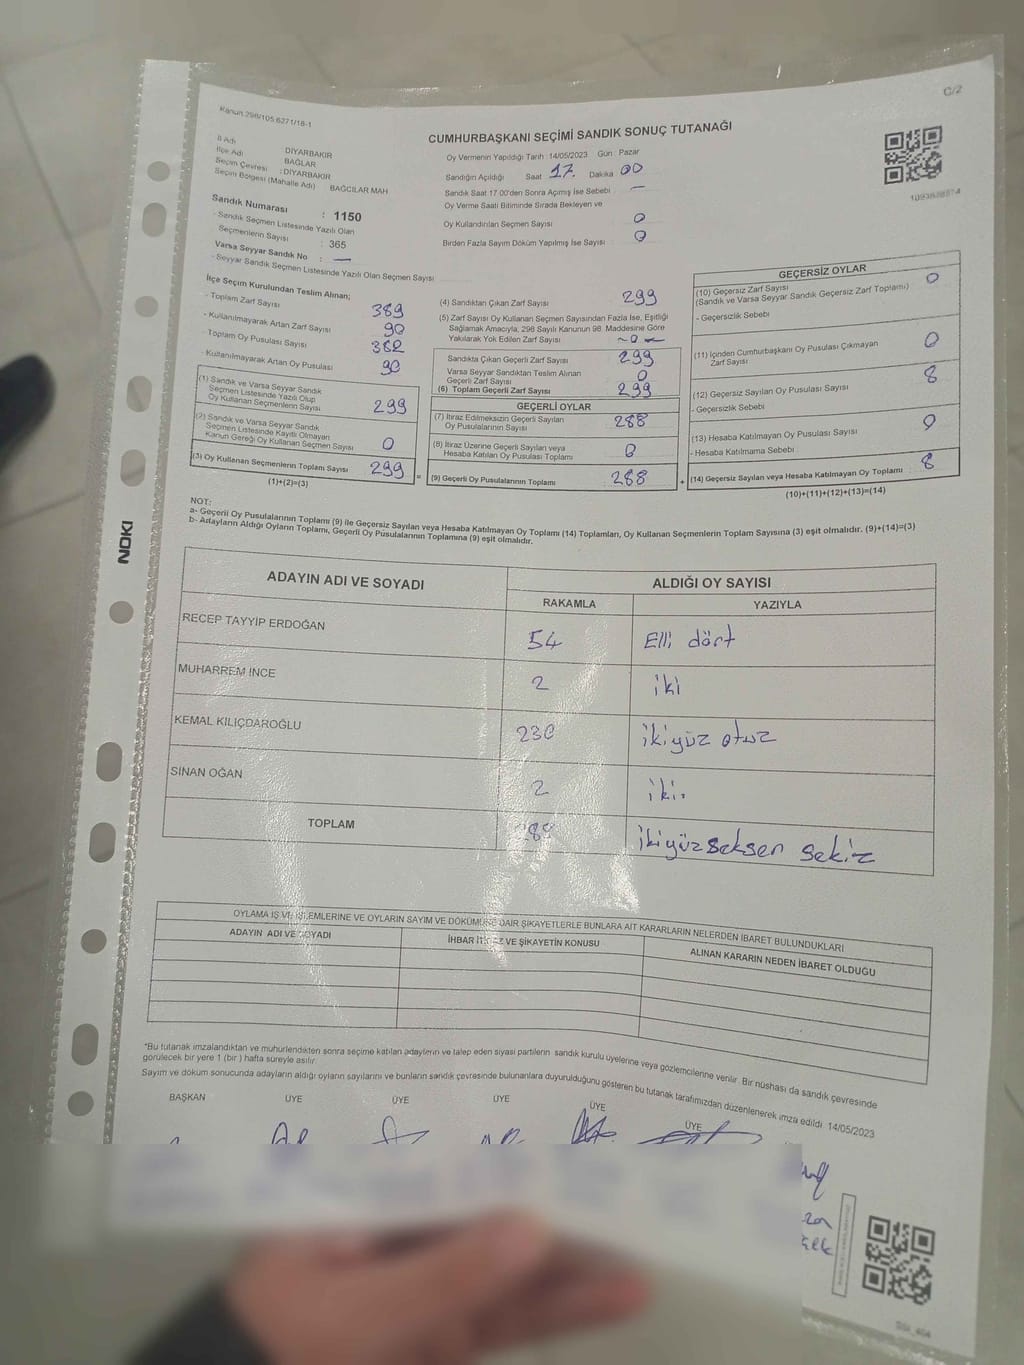 C/2
Kanun 298/105,6271/18-1
CUMHURBAŞKANI SEÇİMİ SANDIK SONUÇ TUTANAĞI
İl Adı DİYARBAKIR
İlçe Adı BAĞLAR
Seçim Çevresi : DİYARBAKIR
Seçim Bölgesi (Mahalle Adı) BAĞCILAR MAH
Sandık Numarası : 1150
- Sandık Seçmen Listesinde Yazılı Olan
Seçmenlerin Sayısı : 365
Varsa Seyyar Sandık No : —
- Seyyar Sandık Seçmen Listesinde Yazılı Olan Seçmen Sayısı
Oy Vermenin Yapıldığı Tarih : 14/05/2023 Gün : Pazar
Sandığın Açıldığı Saat 17. Dakika 00
Sandık Saat 17.00'den Sonra Açılmış İse Sebebi —
Oy Verme Saati Bitiminde Sırada Bekleyen ve
Oy Kullandırılan Seçmen Sayısı 0
Birden Fazla Sayım Döküm Yapılmış İse Sayısı 0
İlçe Seçim Kurulundan Teslim Alınan;
- Toplam Zarf Sayısı 389
- Kullanılmayarak Artan Zarf Sayısı 90
- Toplam Oy Pusulası Sayısı 382
- Kullanılmayarak Artan Oy Pusulası 90
(1) Sandık ve Varsa Seyyar Sandık
Seçmen Listesinde Yazılı Olup
Oy Kullanan Seçmenlerin Sayısı 299
(2) Sandık ve Varsa Seyyar Sandık
Seçmen Listesinde Kayıtlı Olmayan
Kanun Gereği Oy Kullanan Seçmen Sayısı 0
(3) Oy Kullanan Seçmenlerin Toplam Sayısı 299
(1)+(2)=(3)
(4) Sandıktan Çıkan Zarf Sayısı 299
(5) Zarf Sayısı Oy Kullanan Seçmen Sayısından Fazla İse, Eşitliği
Sağlamak Amacıyla, 298 Sayılı Kanunun 98. Maddesine Göre
Yakılarak Yok Edilen Zarf Sayısı ~0~
Sandıkta Çıkan Geçerli Zarf Sayısı 299
Varsa Seyyar Sandıktan Teslim Alınan
Geçerli Zarf Sayısı 0
(6) Toplam Geçerli Zarf Sayısı 299
GEÇERLİ OYLAR
(7) İtiraz Edilmeksizin Geçerli Sayılan
Oy Pusulalarının Sayısı 288
(8) İtiraz Üzerine Geçerli Sayılan veya
Hesaba Katılan Oy Pusulası Toplamı 0
(9) Geçerli Oy Pusulalarının Toplamı 288
GEÇERSİZ OYLAR
(10) Geçersiz Zarf Sayısı 0
(Sandık ve Varsa Seyyar Sandık Geçersiz Zarf Toplamı)
- Geçersizlik Sebebi
(11) İçinden Cumhurbaşkanı Oy Pusulası Çıkmayan
Zarf Sayısı 0
(12) Geçersiz Sayılan Oy Pusulası Sayısı 8
- Geçersizlik Sebebi
(13) Hesaba Katılmayan Oy Pusulası Sayısı 0
- Hesaba Katılmama Sebebi
(14) Geçersiz Sayılan veya Hesaba Katılmayan Oy Toplamı 8
(10)+(11)+(12)+(13)=(14)
NOT:
a- Geçerli Oy Pusulalarının Toplamı (9) ile Geçersiz Sayılan veya Hesaba Katılmayan Oy Toplamı (14) Toplamları, Oy Kullanan Seçmenlerin Toplam Sayısına (3) eşit olmalıdır. (9)+(14)=(3)
b- Adayların Aldığı Oyların Toplamı, Geçerli Oy Pusulalarının Toplamına (9) eşit olmalıdır.
NOKI
ADAYIN ADI VE SOYADI ALDIĞI OY SAYISI
RAKAMLA YAZIYLA
RECEP TAYYİP ERDOĞAN 54 Elli dört
MUHARREM İNCE 2 iki
KEMAL KILIÇDAROĞLU 230 ikiyüz otuz
SİNAN OĞAN 2 iki.
TOPLAM 288 ikiyüz seksen sekiz
OYLAMA İŞ VE İŞLEMLERİNE VE OYLARIN SAYIM VE DÖKÜMÜNE DAİR ŞİKAYETLERLE BUNLARA AİT KARARLARIN NELERDEN İBARET BULUNDUKLARI
ADAYIN ADI VE SOYADI İHBAR İTİRAZ VE ŞİKAYETİN KONUSU ALINAN KARARIN NEDEN İBARET OLDUĞU
*Bu tutanak imzalandıktan ve mühürlendikten sonra seçime katılan adayların ve talep eden siyasi partilerin sandık kurulu üyelerine veya gözlemcilerine verilir. Bir nüshası da sandık çevresinde
görülecek bir yere 1 (bir) hafta süreyle asılır.
Sayım ve döküm sonucunda adayların aldığı oyların sayılarını ve bunların sandık çevresinde bulunanlara duyurulduğunu gösteren bu tutanak tarafımızdan düzenlenerek imza edildi. 14/05/2023
BAŞKAN ÜYE ÜYE ÜYE ÜYE ÜYE